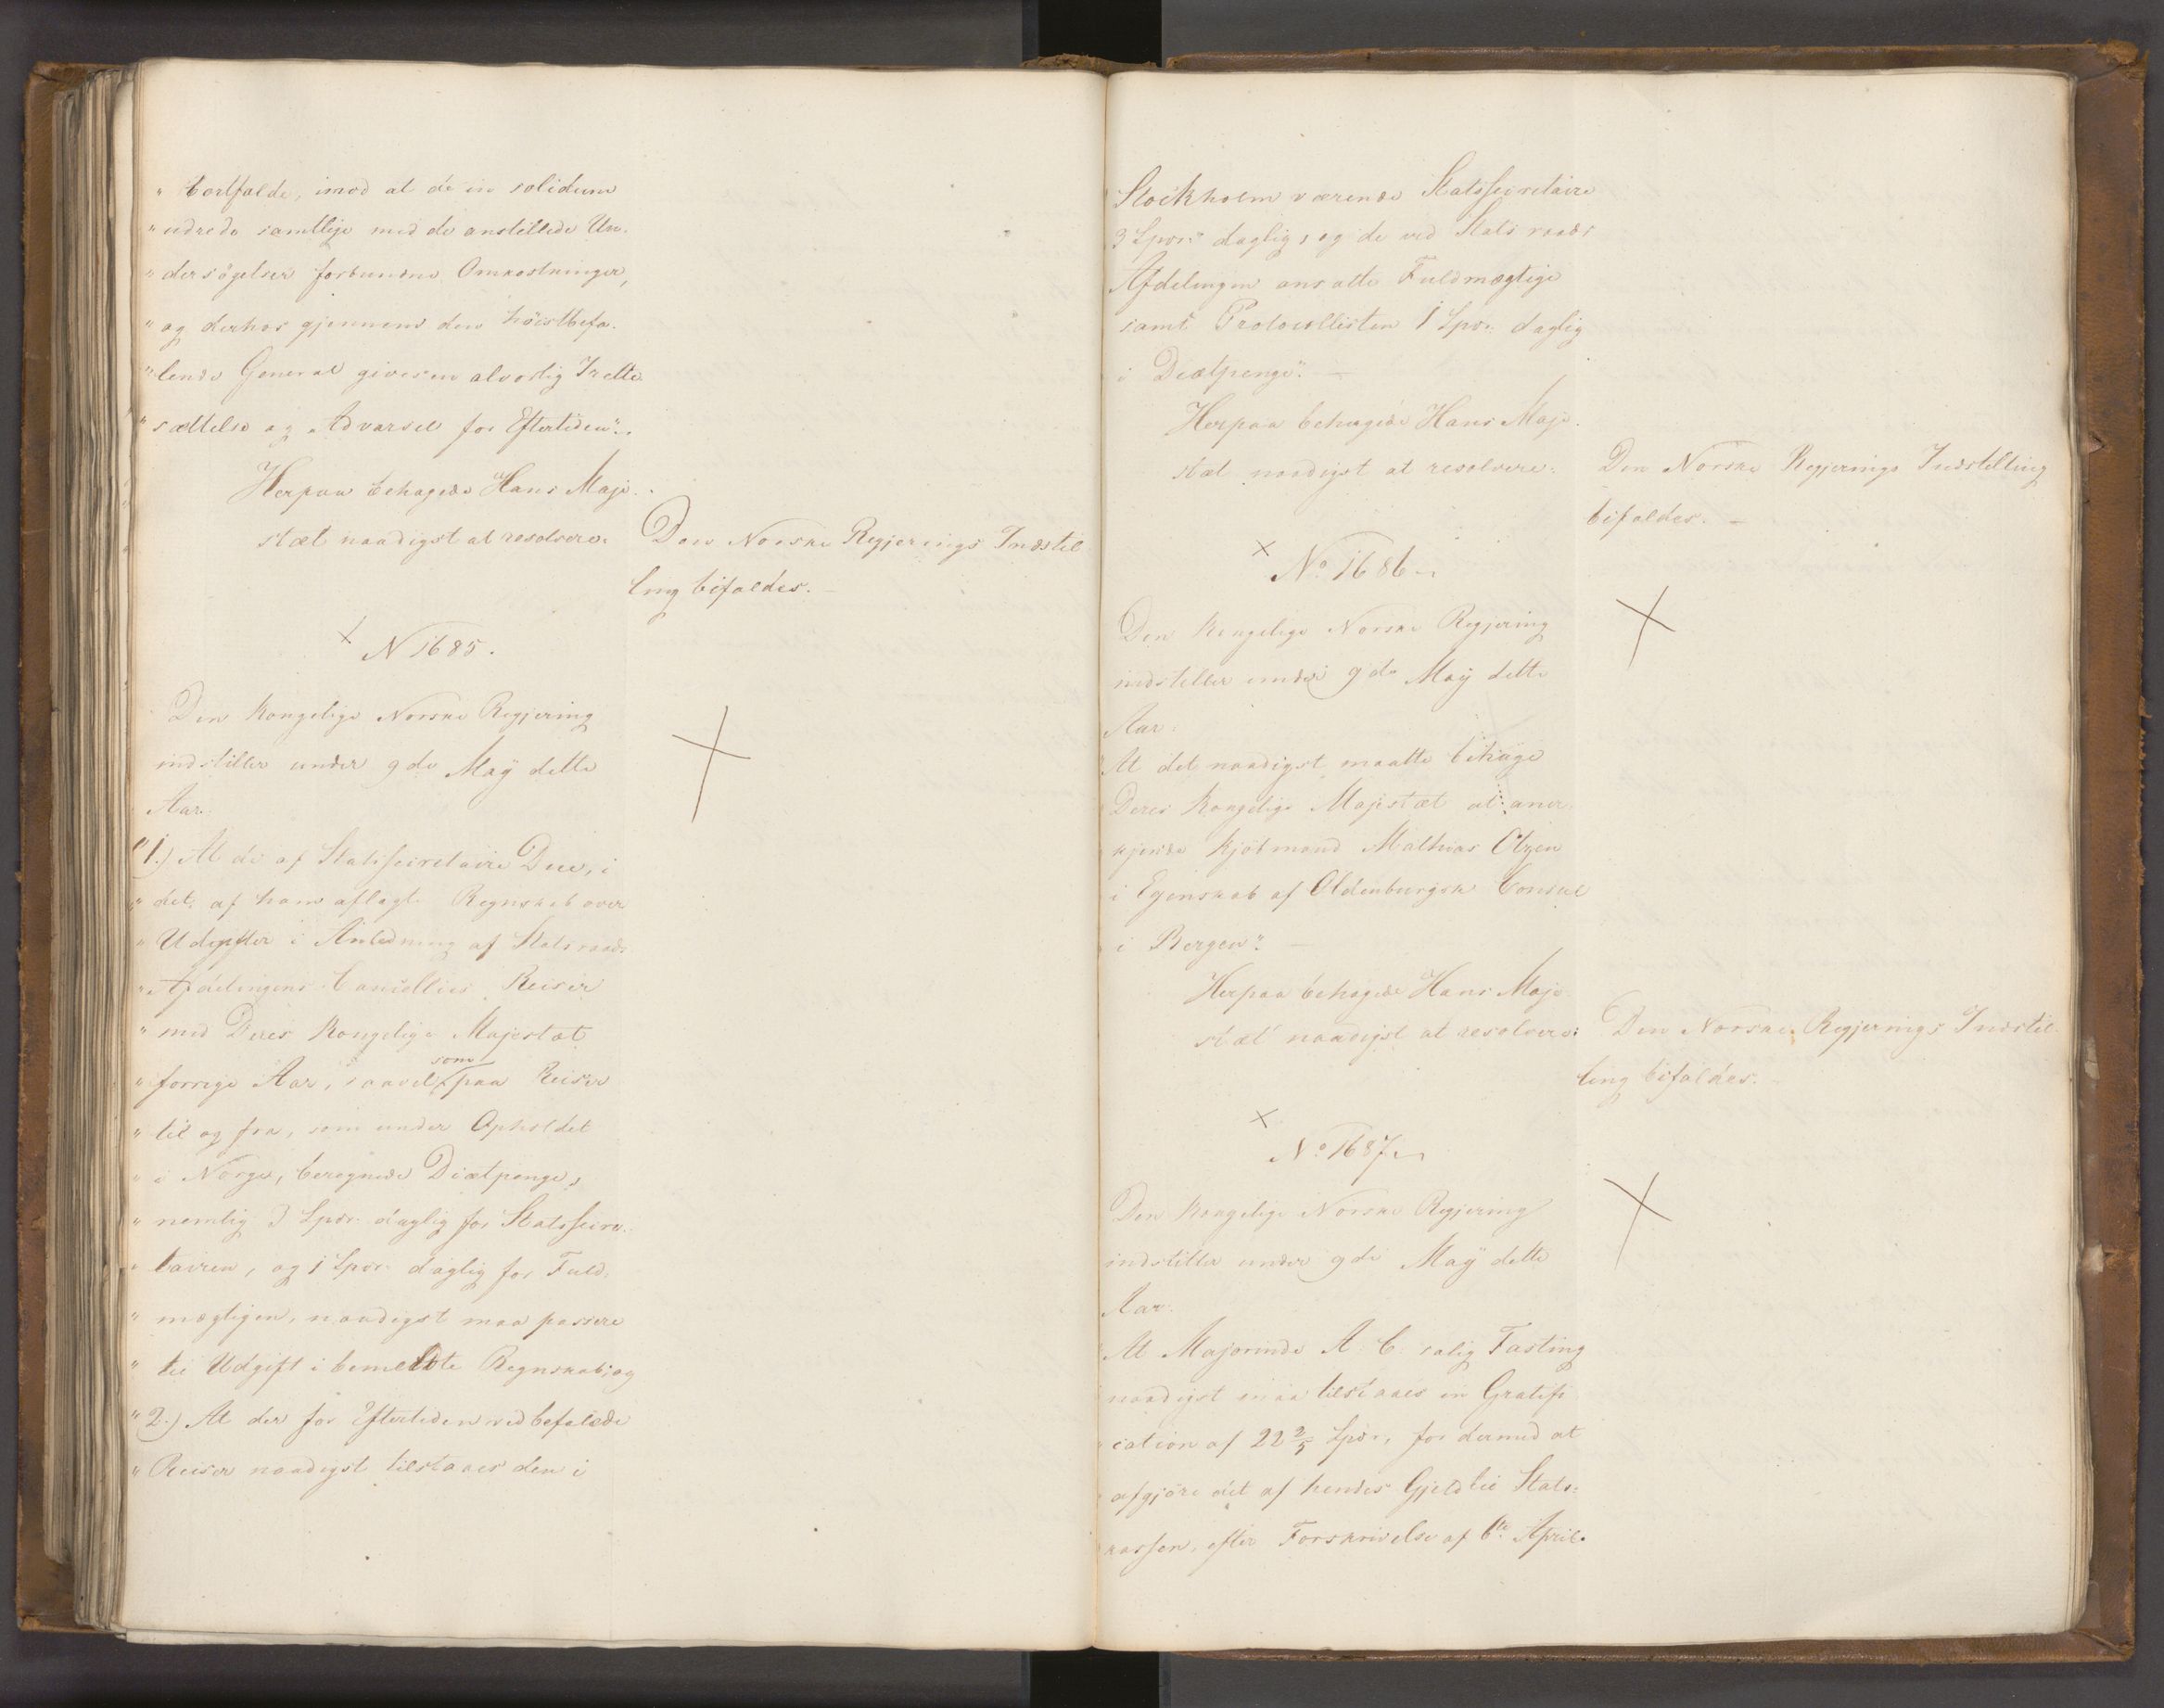 " bortfalde, imod at de in solidum
" udrede samtlige med de anstillede Un-
" dersögelser forbundne Omkostninger,
" og derhos gjennem den höistbefa-
" lende General gives en alvorlig Irette
" sættelse og Advarsel for Eftertiden".
Herpaa behagede Hans Maje-
stæt naadigst at resolvere:
Den Norske Regjerings Indstil
ling bifaldes. –
× N 1685.
Den Kongelige Norske Regjering
indstiller under 9de Maÿ dette
Aar.
"1.) At de af Statssecretaire Due, i
" det af ham aflagte Regnskab over
" Udgifter i Anledning af Statsraads
" Afdelingens Cancellies Reiser
" med Deres Kongelige Majestæt
" forrige Aar, saavel som paa Reiser
" til og fra, som under Opholdet
" i Norge, beregnede Diætpenge,
" nemlig 3 Spdr. daglig for Statssecre-
" tairen, og 1 Spdr. daglig for Fuld-
" mægtigen, naadigst maa passere
" til Udgift i bemeldte Regnskab; og
" 2.) At der for Eftertiden ved befalede
" Reiser naadigst tilstaaes den i
Stockholm værende Statssecretaire
3 Spdr. daglig, og de ved Statsraads
Afdelingen ansatte Fuldmægtige
samt Protocollisten 1 Spdr. daglig
i Diætpenge". –
Herpaa behagede Hans Maje-
stæt naadigst at resolvere:
Den Norske Regjerings Indstilling
bifaldes. –
× No. 1686.
Den Kongelige Norske Regjering
indstiller under 9de Maÿ dette
Aar:
"At det naadigst maatte behage
Deres Kongelige Majestæt at aner-
kjende Kjöbmand Mathias Olzen
i Egenskab af Oldenburgsk Consul
i Bergen". –
Herpaa behagede Hans Maje
stæt naadigst at resolvere:
Den Norske Regjerings Indstil-
ling bifaldes. –
× No. 1687.
Den Kongelige Norske Regjering
indstiller under 9de Maÿ dette
Aar:
"At Majorinde A. C. salig Fasting
naadigst maa tilstaaes en Gratifi
cation af 22 2/5 Spdr, for dermed at
afgjöre det af hendes Gjeld til Stats-
kassen, efter Forskrivelse af 6te April